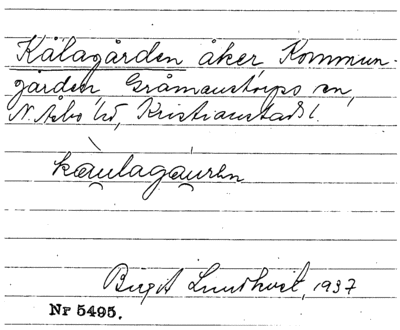 Kålagården åker, Kommun-
gården, Gråmanstorps sn,
N. Åsbo hd, Kristianstads l.
kau̯lagau̯rən
Birgit Lundkvist, 1937
Nr 5495.